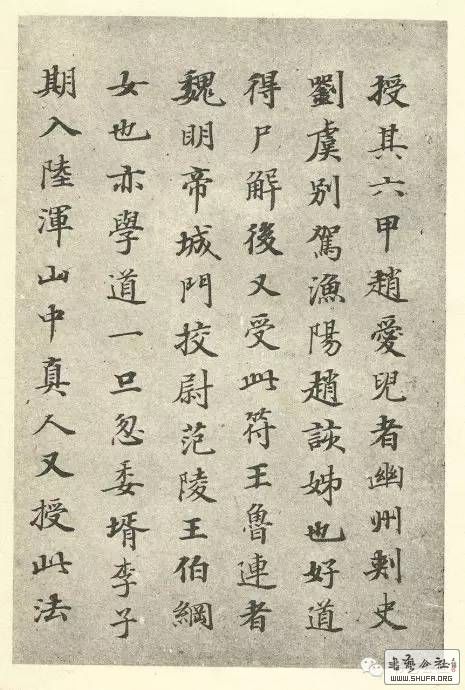 授其六甲趙愛兒者幽州刺史
劉虞別駕漁陽趙該姊也好道
得尸解後又受此符王魯連者
魏明帝城門挍尉范陵王伯綱
女也亦學道一旦忽委壻李子
期入陸渾山中真人又授此法
書藝公社
WWW.SHUFA.ORG